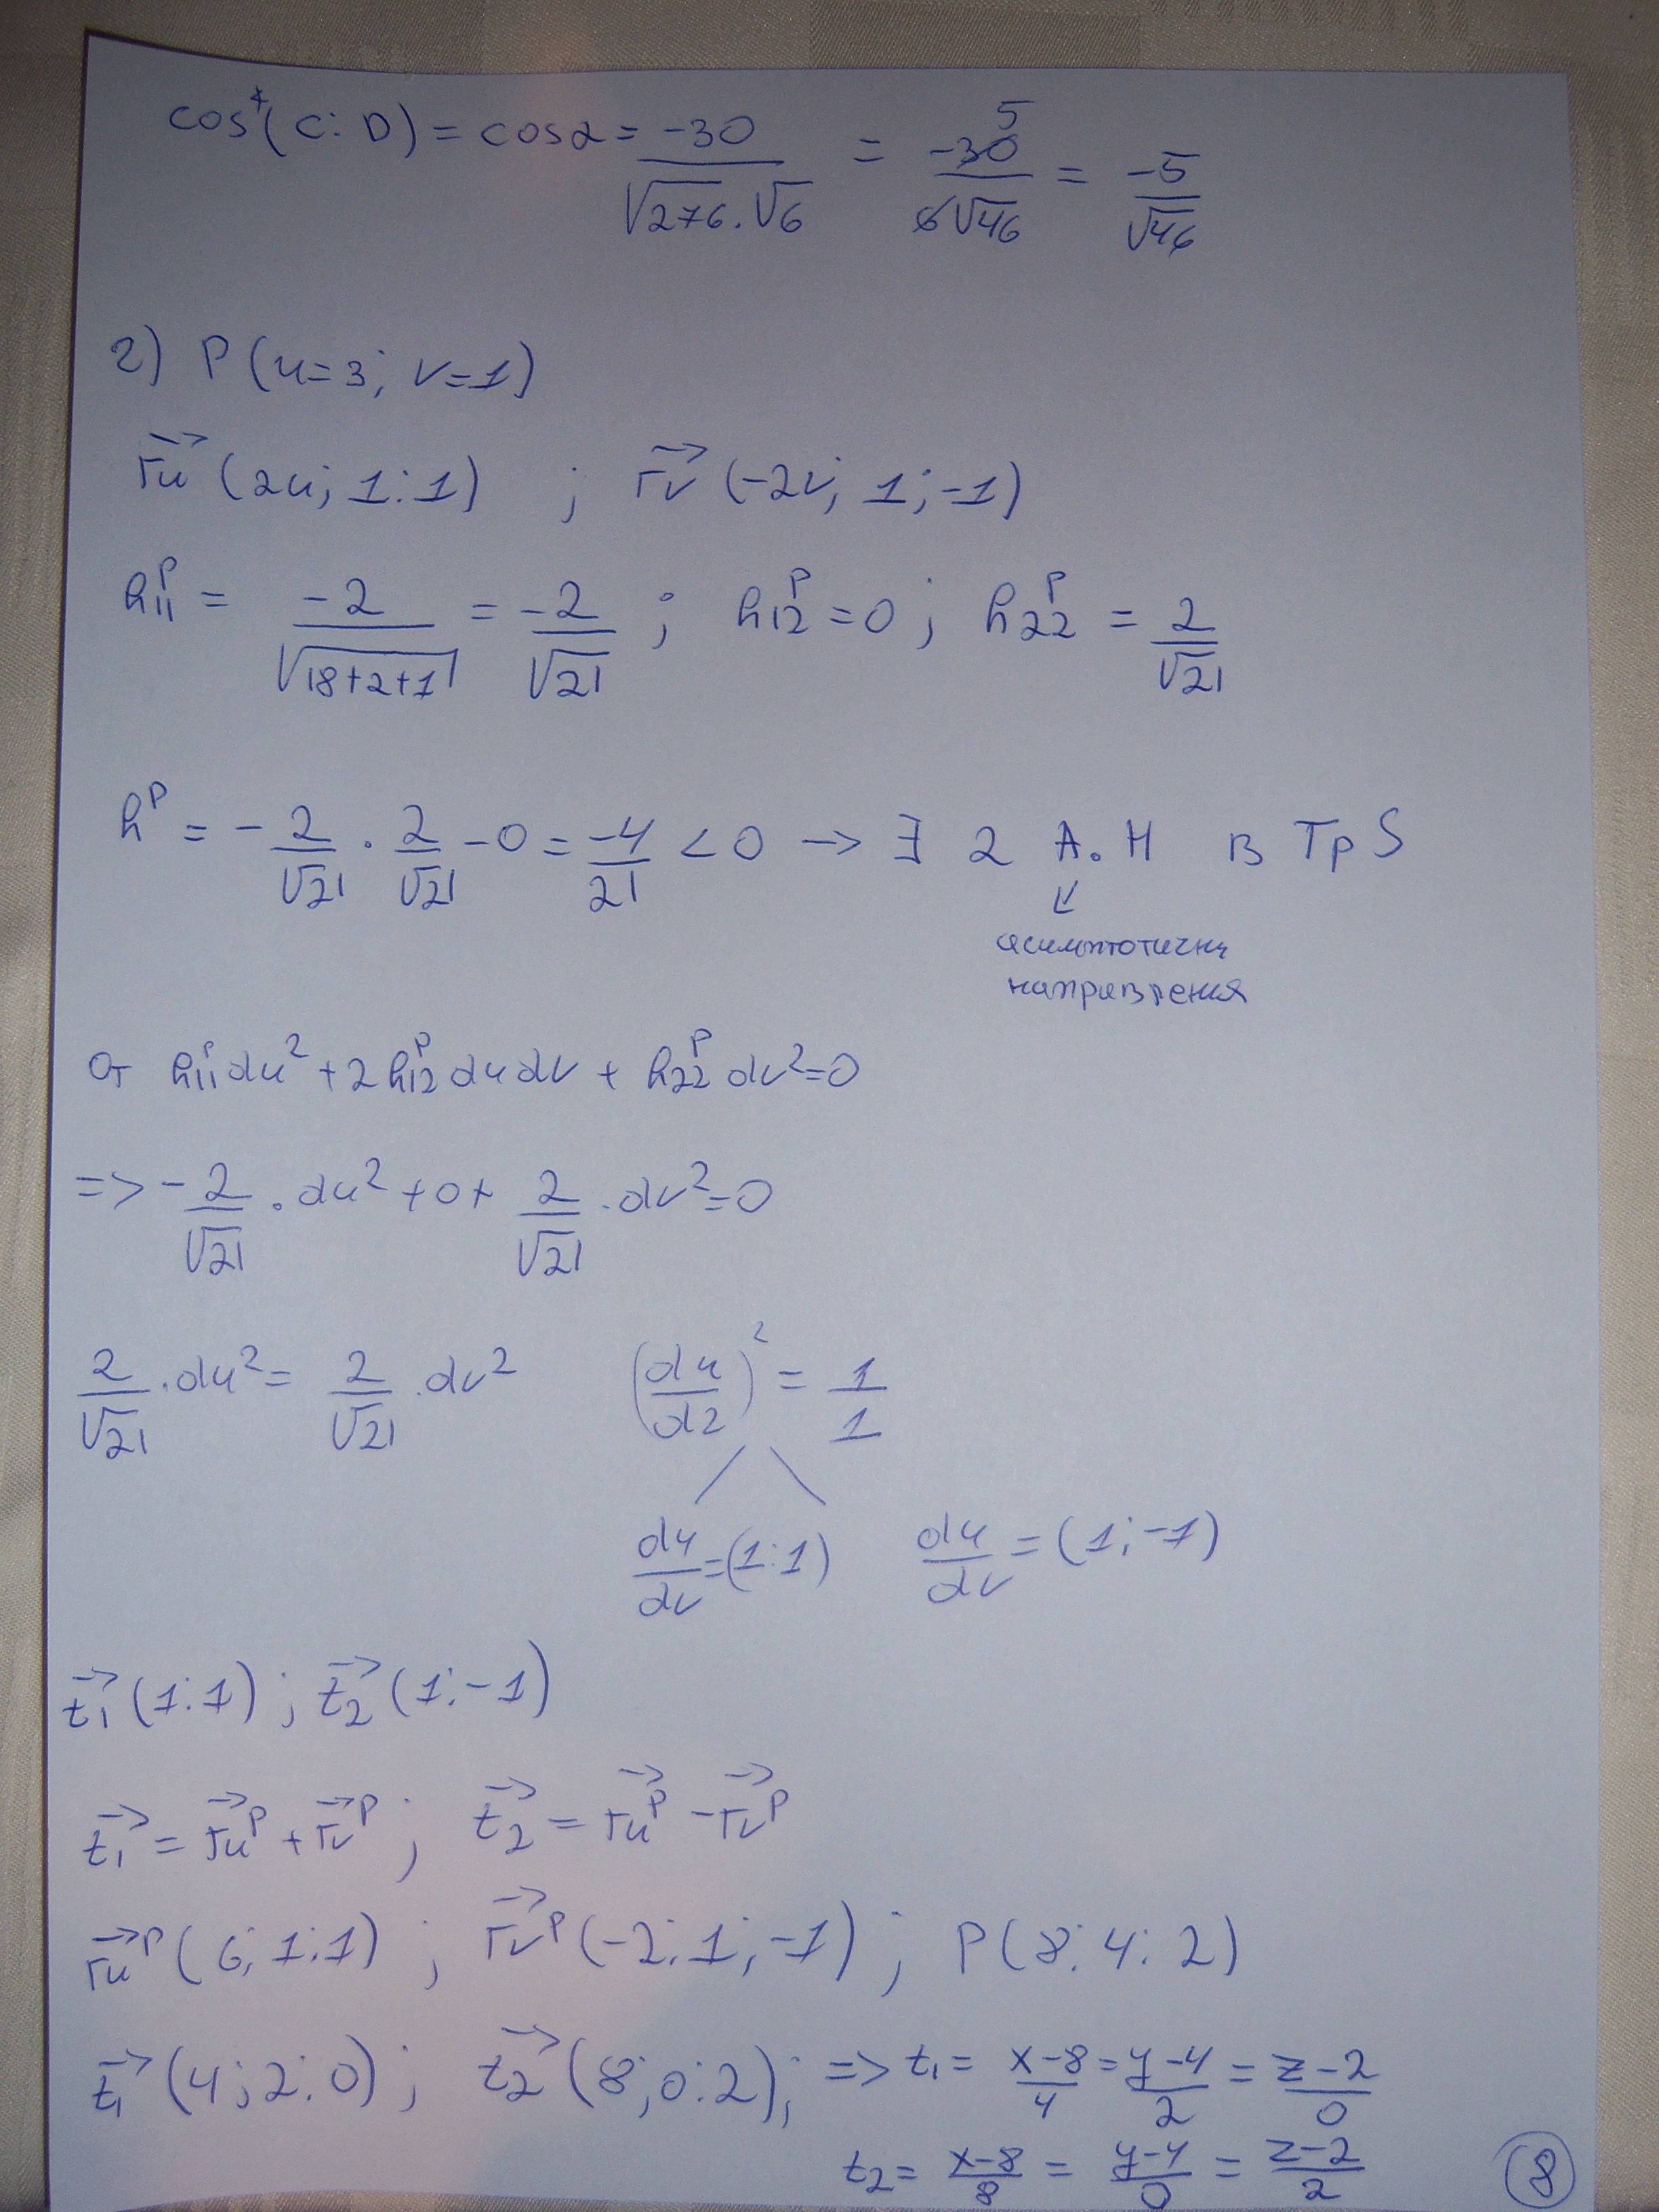 cos∢(C; D) = cos α = -30/(√276.√6) = -30/(6√46) 5 = -5/√46
2) P (u=3; v=1)
r⃗u (2u; 1; 1) ; r⃗v (-2v; 1; -1)
h₁₁ᴾ = -2/√(18+2+1) = -2/√21 ; h₁₂ᴾ = 0 ; h₂₂ᴾ = 2/√21
hᴾ = - 2/√21 . 2/√21 - 0 = -4/21 < 0 → ∃ 2 А.Н в TpS
↙
асимптотични
направления
От h₁₁ᴾdu² + 2h₁₂ᴾdudv + h₂₂ᴾdv² = 0
=> - 2/√21 . du² + 0 + 2/√21 . dv² = 0
2/√21 . du² = 2/√21 . dv² (du/d2)² = 1/1
du/dv = (1; 1) du/dv = (1; -1)
t⃗₁ (1; 1) ; t⃗₂ (1; -1)
t⃗₁ = r⃗uᴾ + r⃗vᴾ ; t⃗₂ = r⃗uᴾ - r⃗vᴾ
r⃗uᴾ (6; 1; 1) ; r⃗vᴾ (-2; 1; -1) ; P (8; 4; 2)
t⃗₁ (4; 2; 0) ; t⃗₂ (8; 0; 2) ; => t₁ = (x-8)/4 = (y-4)/2 = (z-2)/0
t₂ = (x-8)/8 = (y-4)/0 = (z-2)/2
8